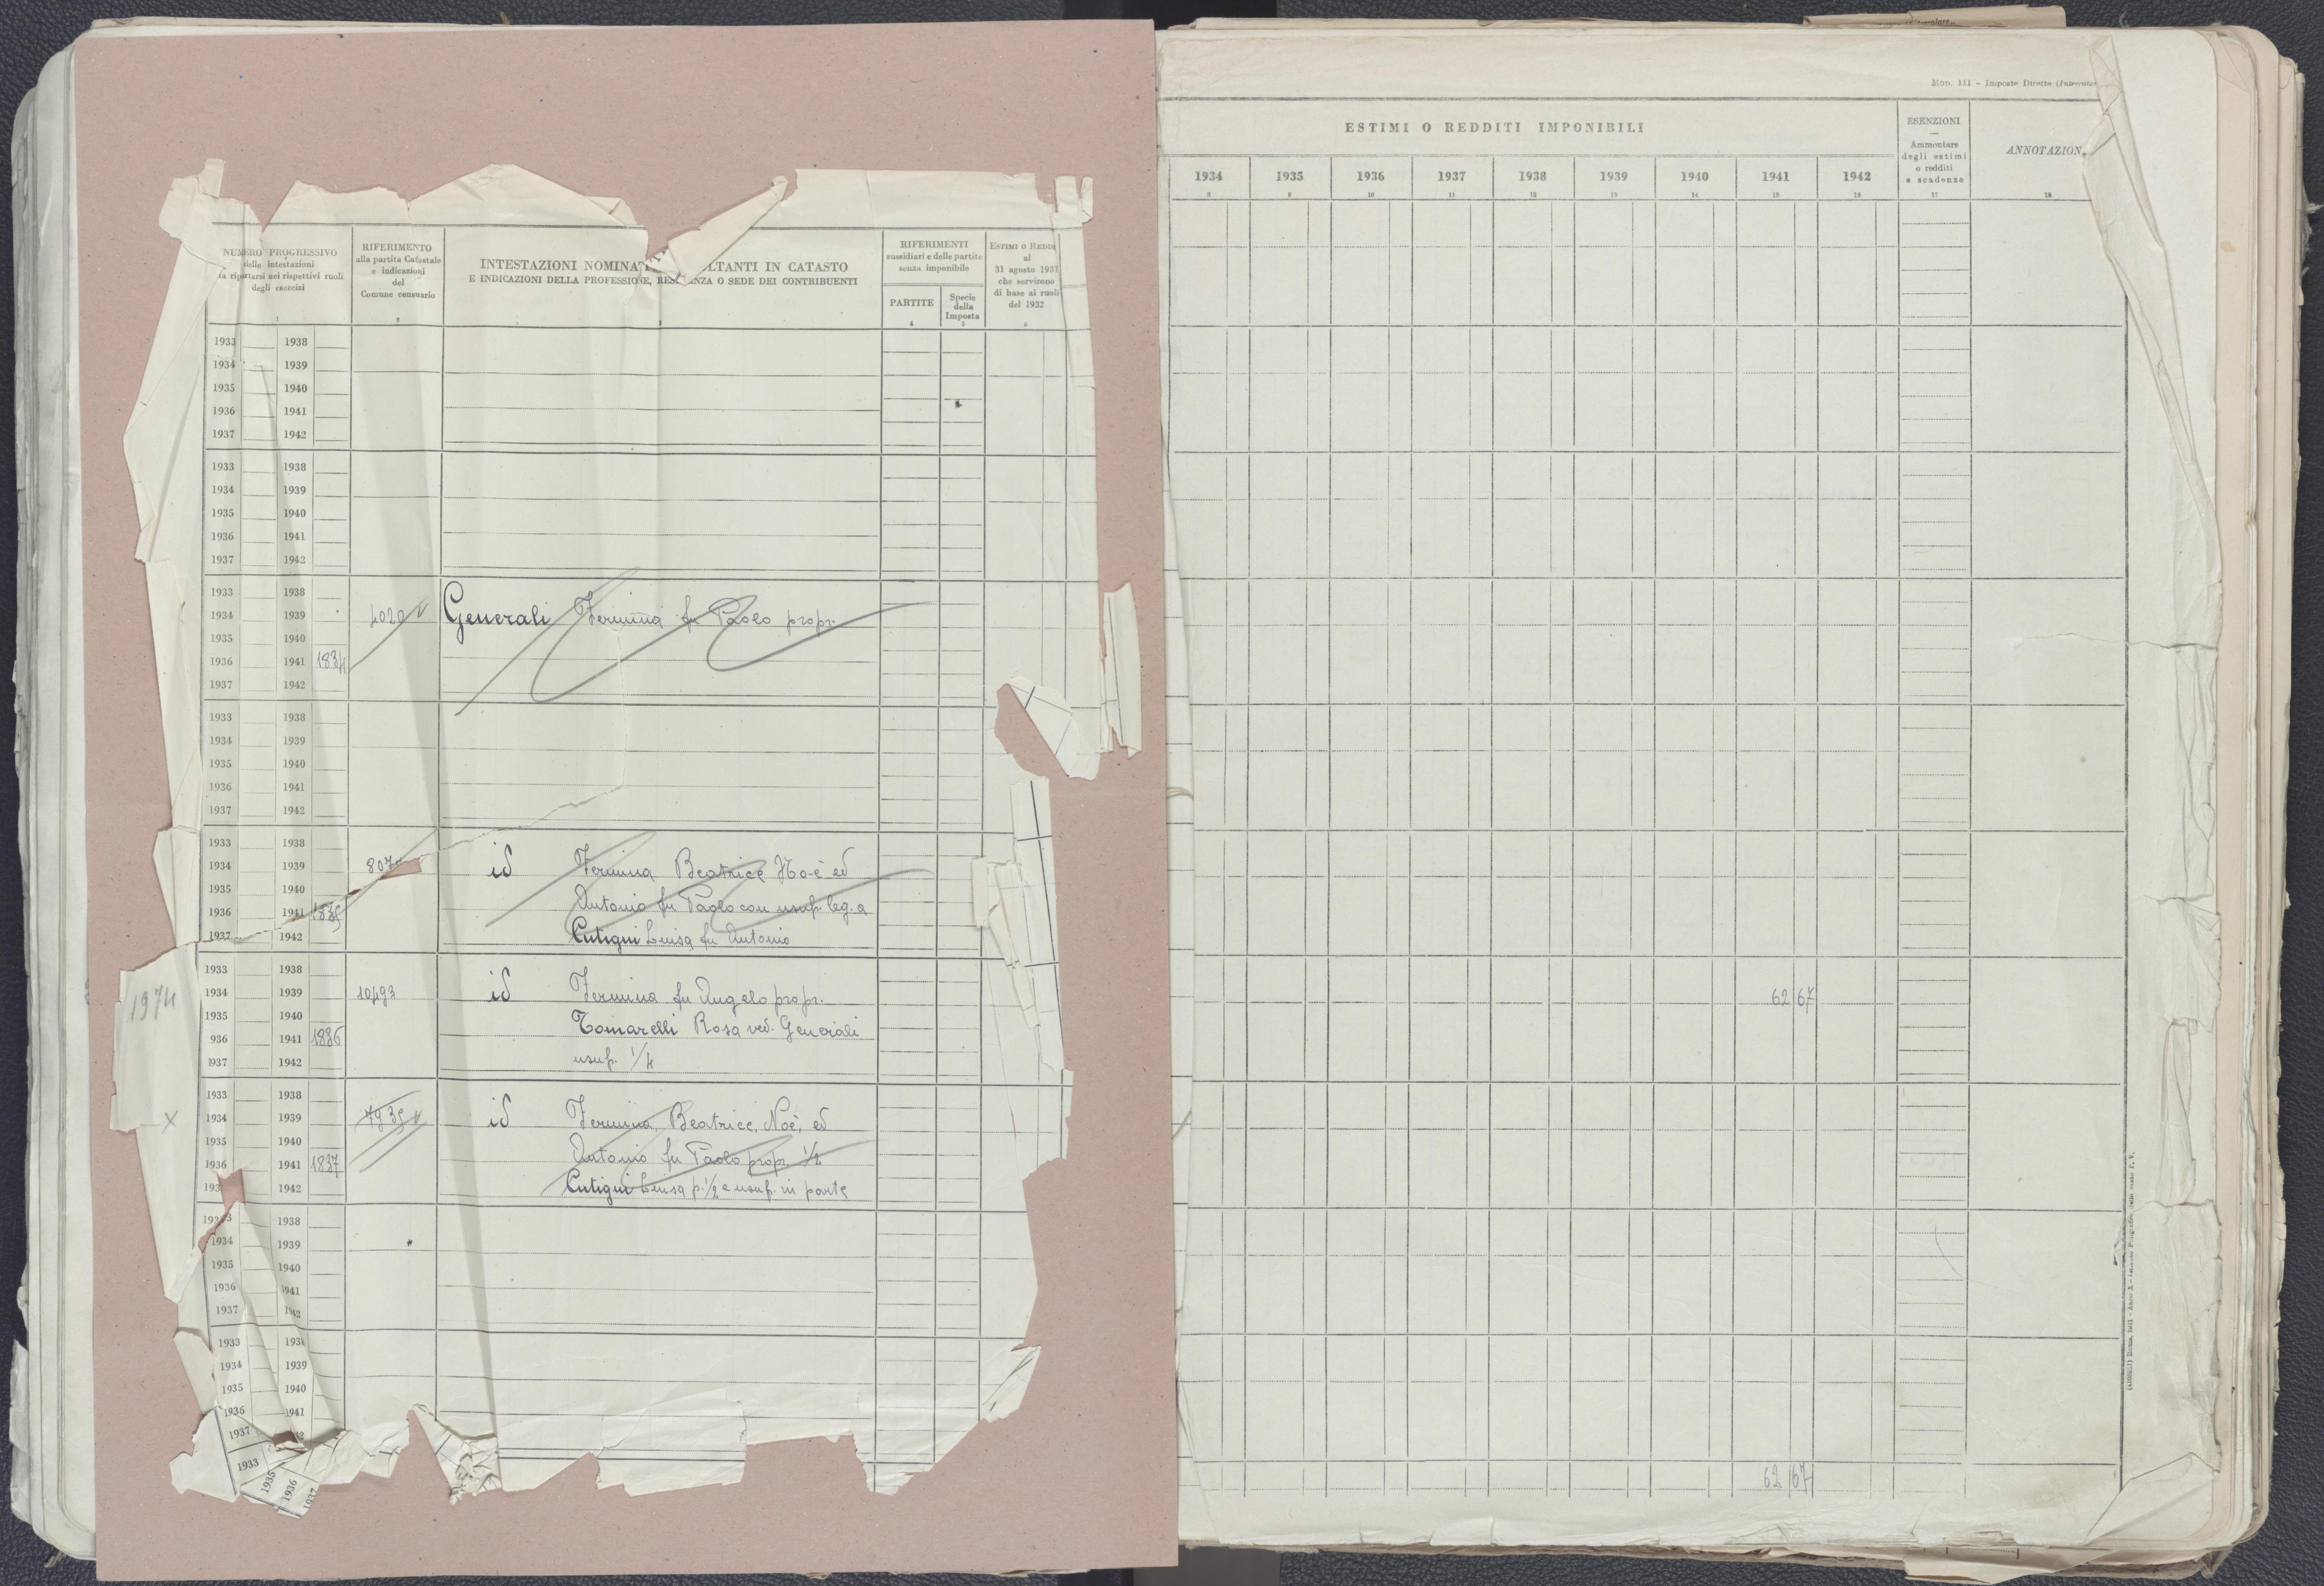 NUMERO PROGRESSIVO
delle intestazioni
da riportarsi nei rispettivi ruoli
degli esercizi
1
RIFERIMENTO
alla partita Catastale
e indicazioni
del
Comune censuario
2
INTESTAZIONI LTANTI IN CATASTO
E INDICAZIONI DELLA PROFESSIONE, O SEDE DEI CONTRIBUENTI
3
RIFERIMENTI
sussidiari e delle partite
senza imponibile
PARTITE
4
Specie
della
Imposta
5
ESTIMI O REDDI
al
31 agosto 1931
che servirono
di base ai ruoli
del 1932
6
1933 1938
1934 1939
1935 1940
1936 1941
1937 1942
1933 1938
1934 1939
1935 1940
1936 1941
1937 1942
1933 1938
1934 1939 4020 Generali Fermina fu Paolo propr.
1935 1940
1936 1941 1834
1937 1942
1933 1938
1934 1939
1935 1940
1936 1941
1937 1942
1933 1938
1934 1939 807 id Fermina Beatrice Noè ed
1935 1940
1936 1941 1835 Antonio fu Paolo con usuf. leg. a
1937 1942 Cutigni Luisa fu Antonio
1933 1938
1974 1934 1939 10493 id Fermina fu Angelo propr.
1935 1940 Tomarelli Rosa ved. Generali
936 1941 1836
1937 1942 usuf. 1/4
1933 1938
x 1934 1939 7935 id Fermina, Beatrice, Noè, ed
1935 1940
1936 1941 1837 Antonio fu Paolo propr. 1/2
193 1942 Cutigni Luisa p. 1/2 e usuf. in parte
1933 1938
1934 1939
1935 1940
1936 1941
1937
1933 193
1934 1939
1935 1940
1936 1941
1937
1933
1935
1936
1937
MOD. 111 - Imposte Dirette
ESTIMI O REDDITI IMPONIBILI
1934 1935 1936 1937 1938 1939 1940 1941 1942
8 9 10 11 12 13 14 15 16
ESENZIONI
Ammontare
degli estimi
o redditi
e scadenze
17
ANNOTAZION
18
62 67
62 67